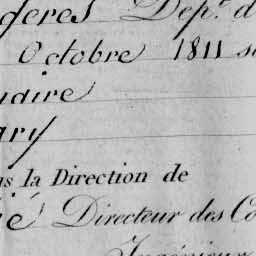 gères Dep.t d
Octobre 1811 s
udire
ary
us la Direction de
ié Directeur des Co
Ingénieur